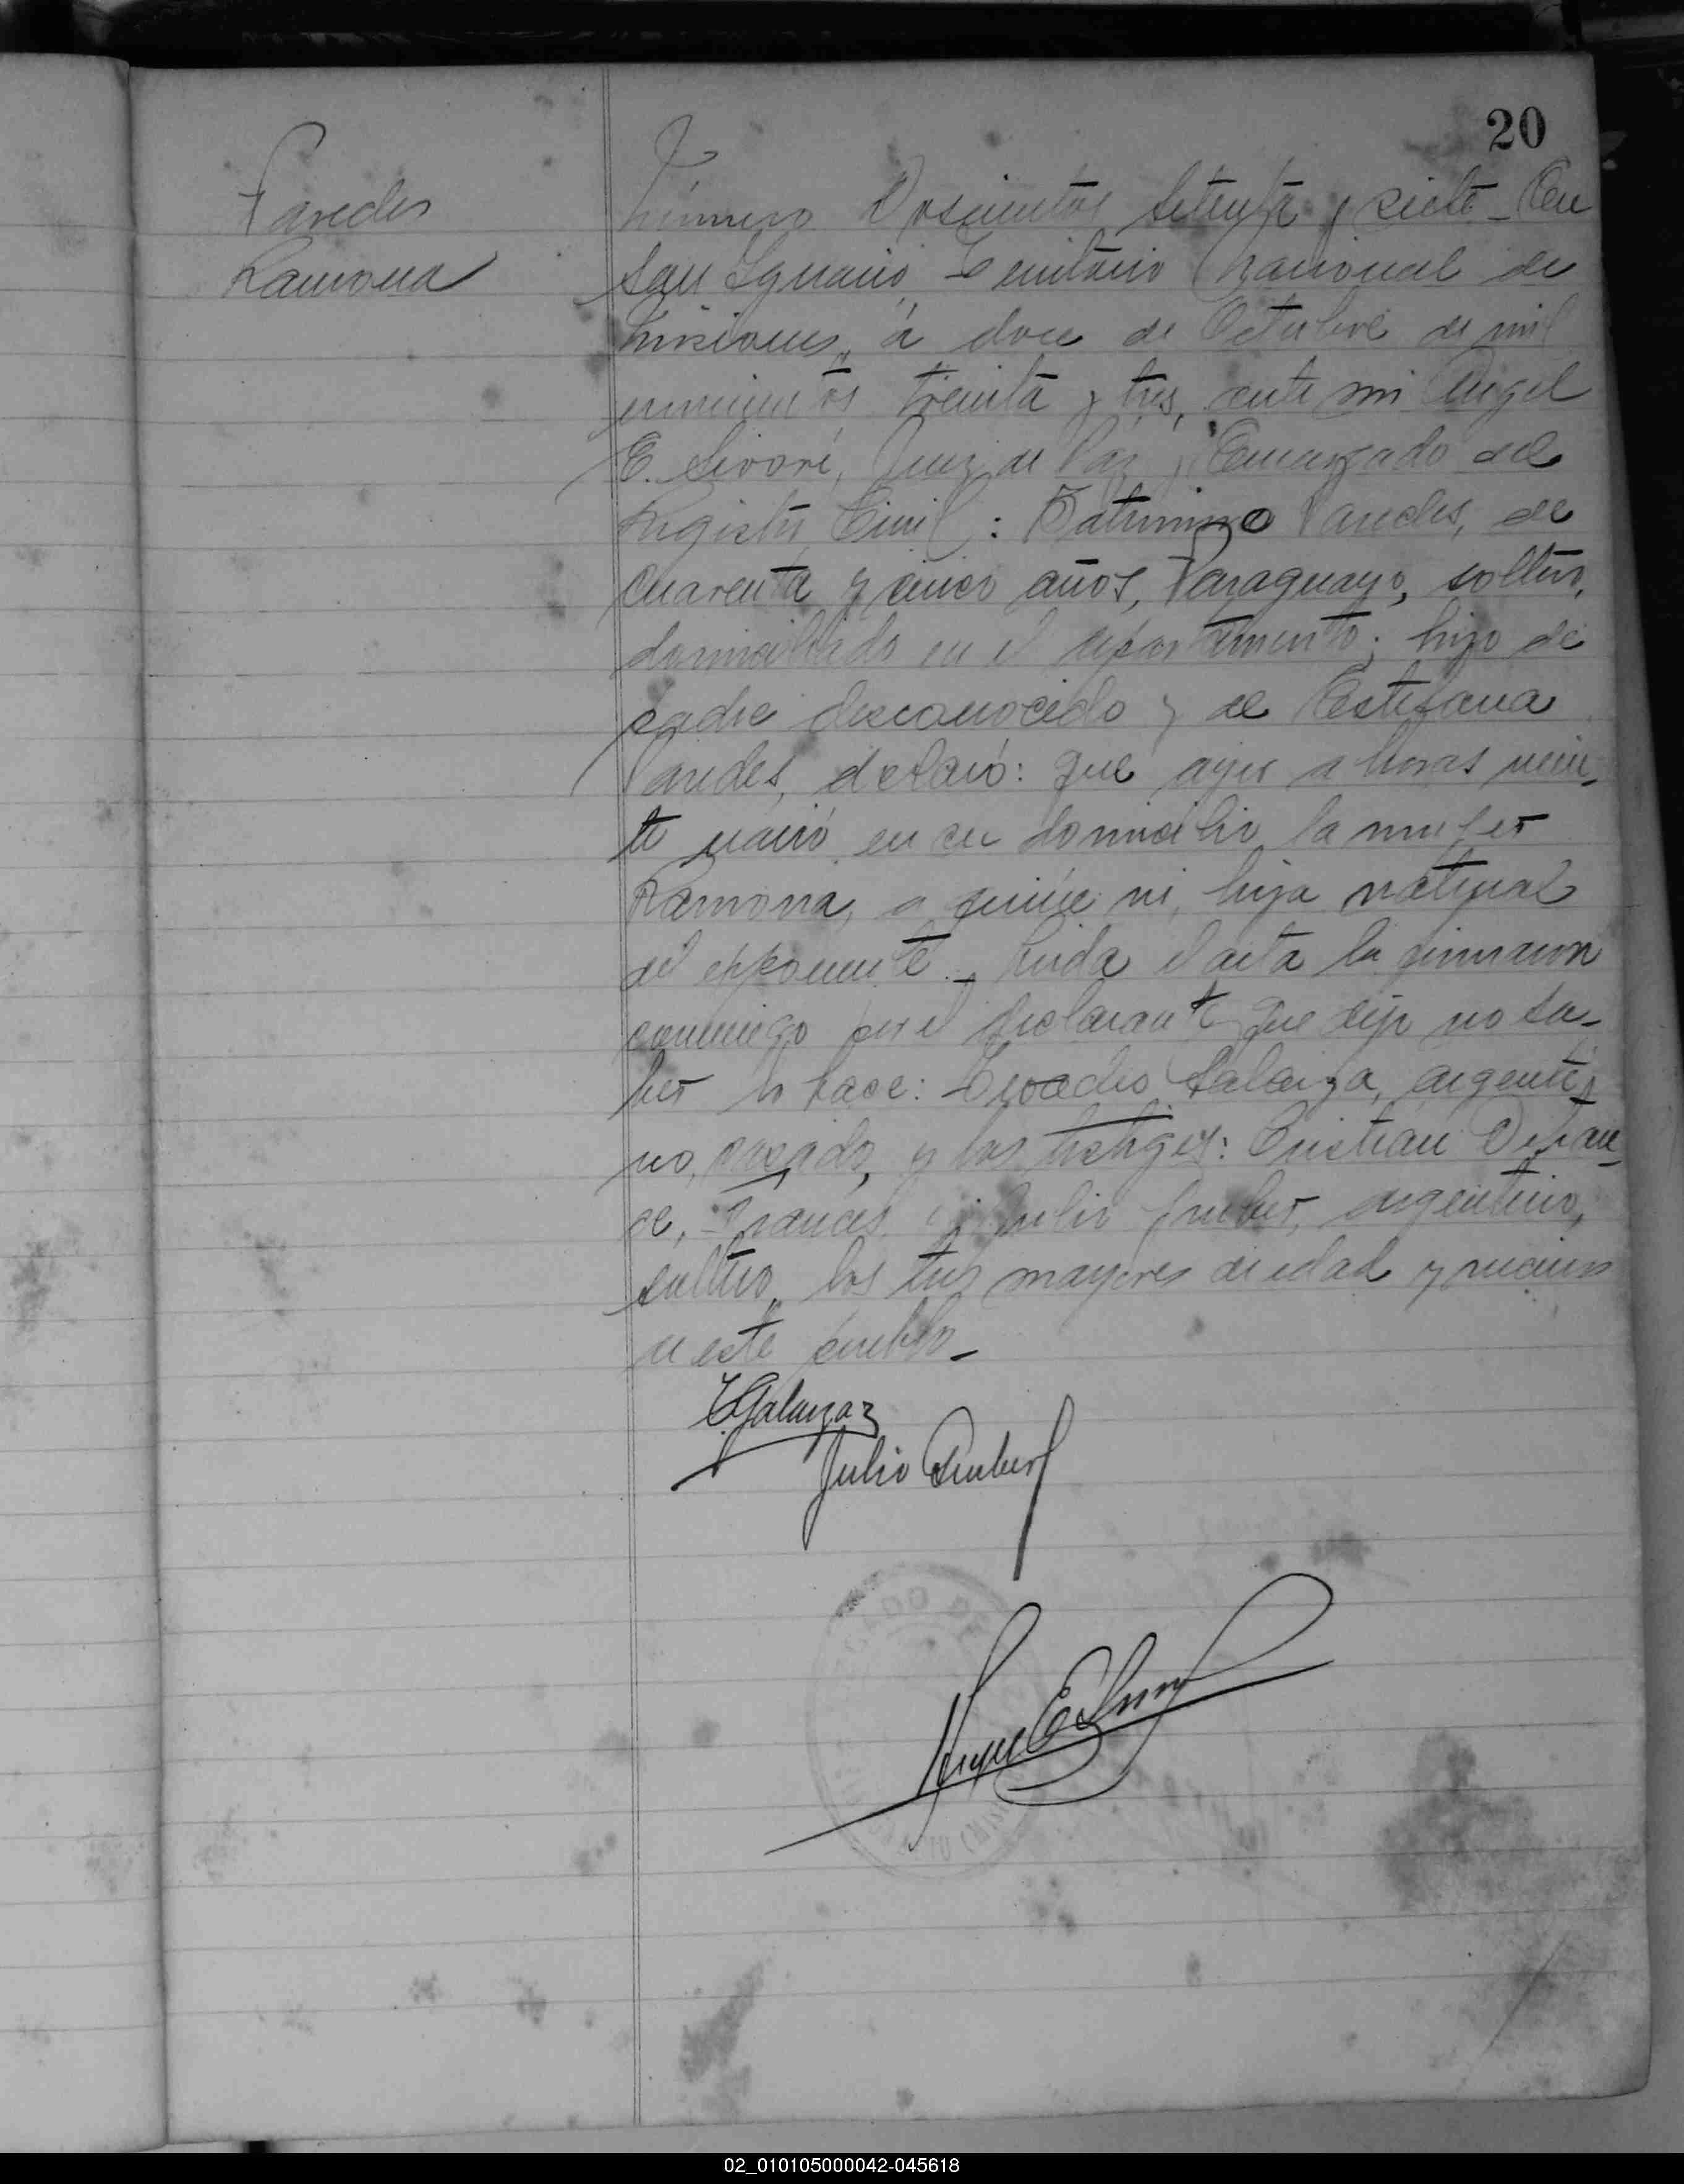 20
Paredes
Ramona
Número Doscientos setenta y siete - En
San Ignacio, Territorio Nacional de
Misiones, á doce de Octubre de mil
novecientos treinta y tres, ante mi Angel
E. Sivori, Juez de Paz y Encargado del
Registro Civil: Paredes, de
cuarenta y cinco años, Paraguayo, soltero,
domiciliado en el departamento; hijo de
padre desconocido y de Estefana
Paredes, declaró: que ayer a horas vein-
te nació en su domicilio la mujer
Ramona, a quien vi, hija natural
del exponente - Leida el acta la firmaron
conmigo por el declarante que dijo no sa-
ber lo hace: Galarza, argenti-
no, casado, y los testigos: Cristian
francés y Julio argentino,
soltero, los tres mayores de edad y vecinos
de este pueblo -
Galarza
Julio
Angel E Sivori
JUZGADO DE
02_010105000042-045618